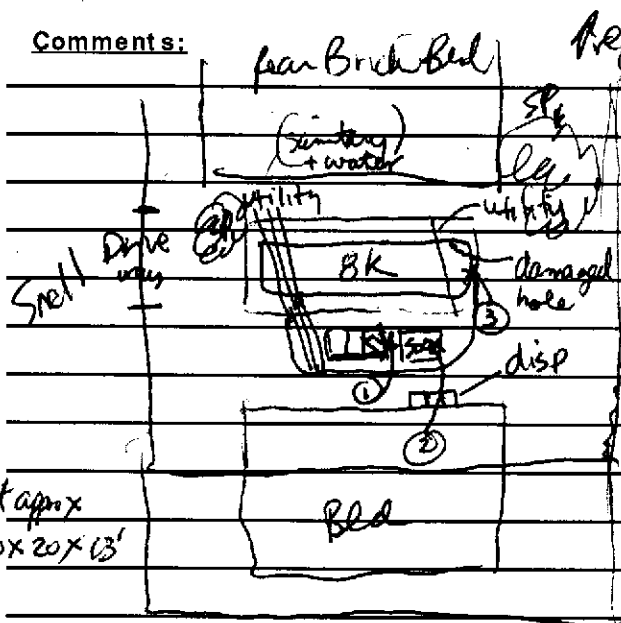 Comments:
rear Brick Bld
(sanitary
+ water)
utility
utility
Drive
way
8K
damaged
hole
Snell
③
①
disp
②
Bld
t approx
0 x 20 x 13'